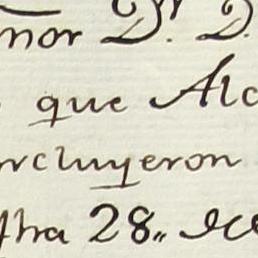 nor Dr. D.
que Alc
ncluyeron
fha 28,,